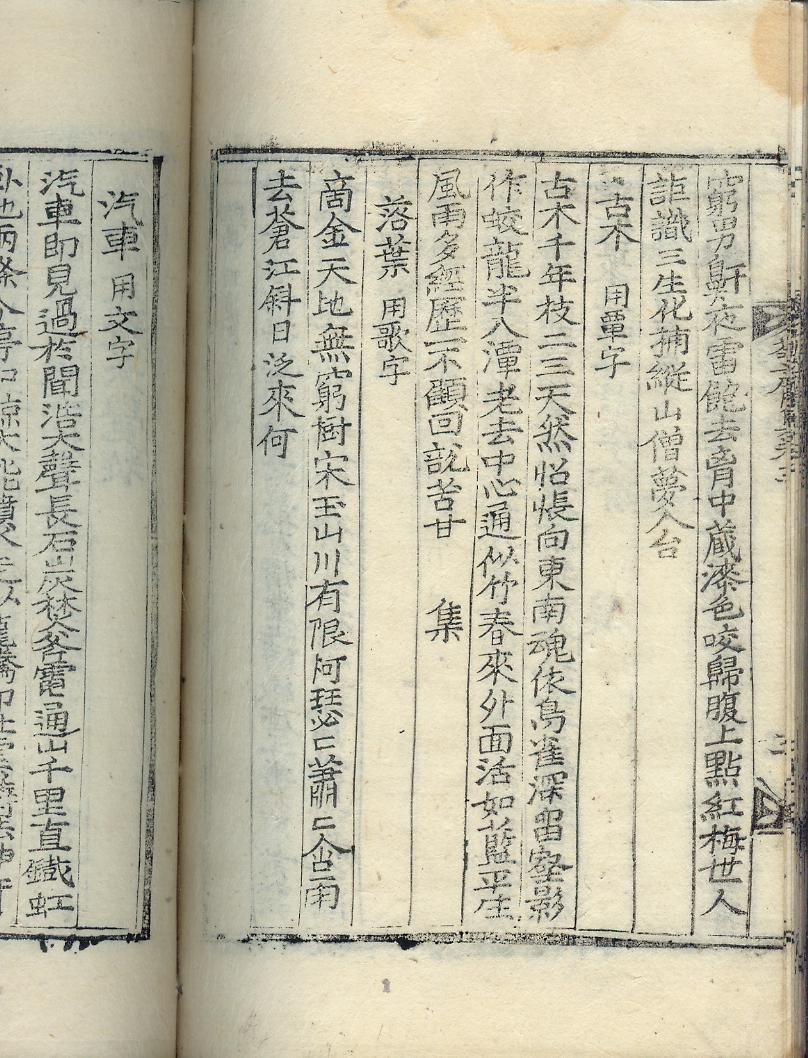 窮男鼾夜雷飽去肯中蔵漆色咬歸腹上點紅梅世人
詎識三生化捕縦山僧夢入台
古木 用覃字
古木千年枝二三天然怊悵向東南魂依鳥雀深留壑影
作蛟龍半入潭老去中心通似竹春來外面活如藍平生
風雨多經歷不顧回說苦甘 集
落葉 用歌字
商金天地無窮樹宋玉山川有限柯瑟〻蕭〻
去蒼江斜日泛來何
汽車 用文字
汽車即見過於聞浩大聲長石山灰 電通山千里直鐵虹
卧地兩條分亭口